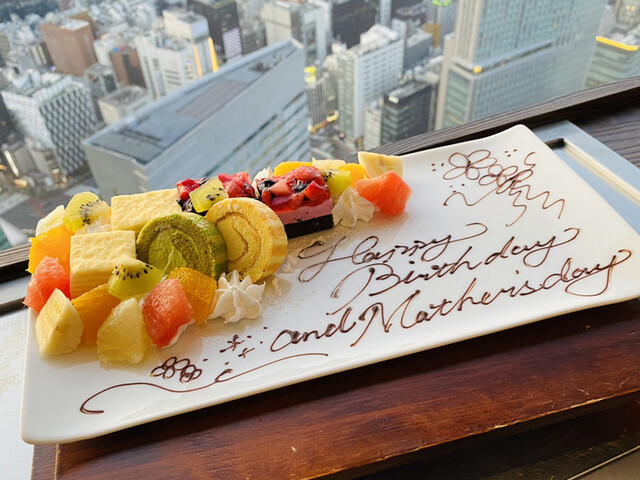 Happy
Birthday
and Mather'sday